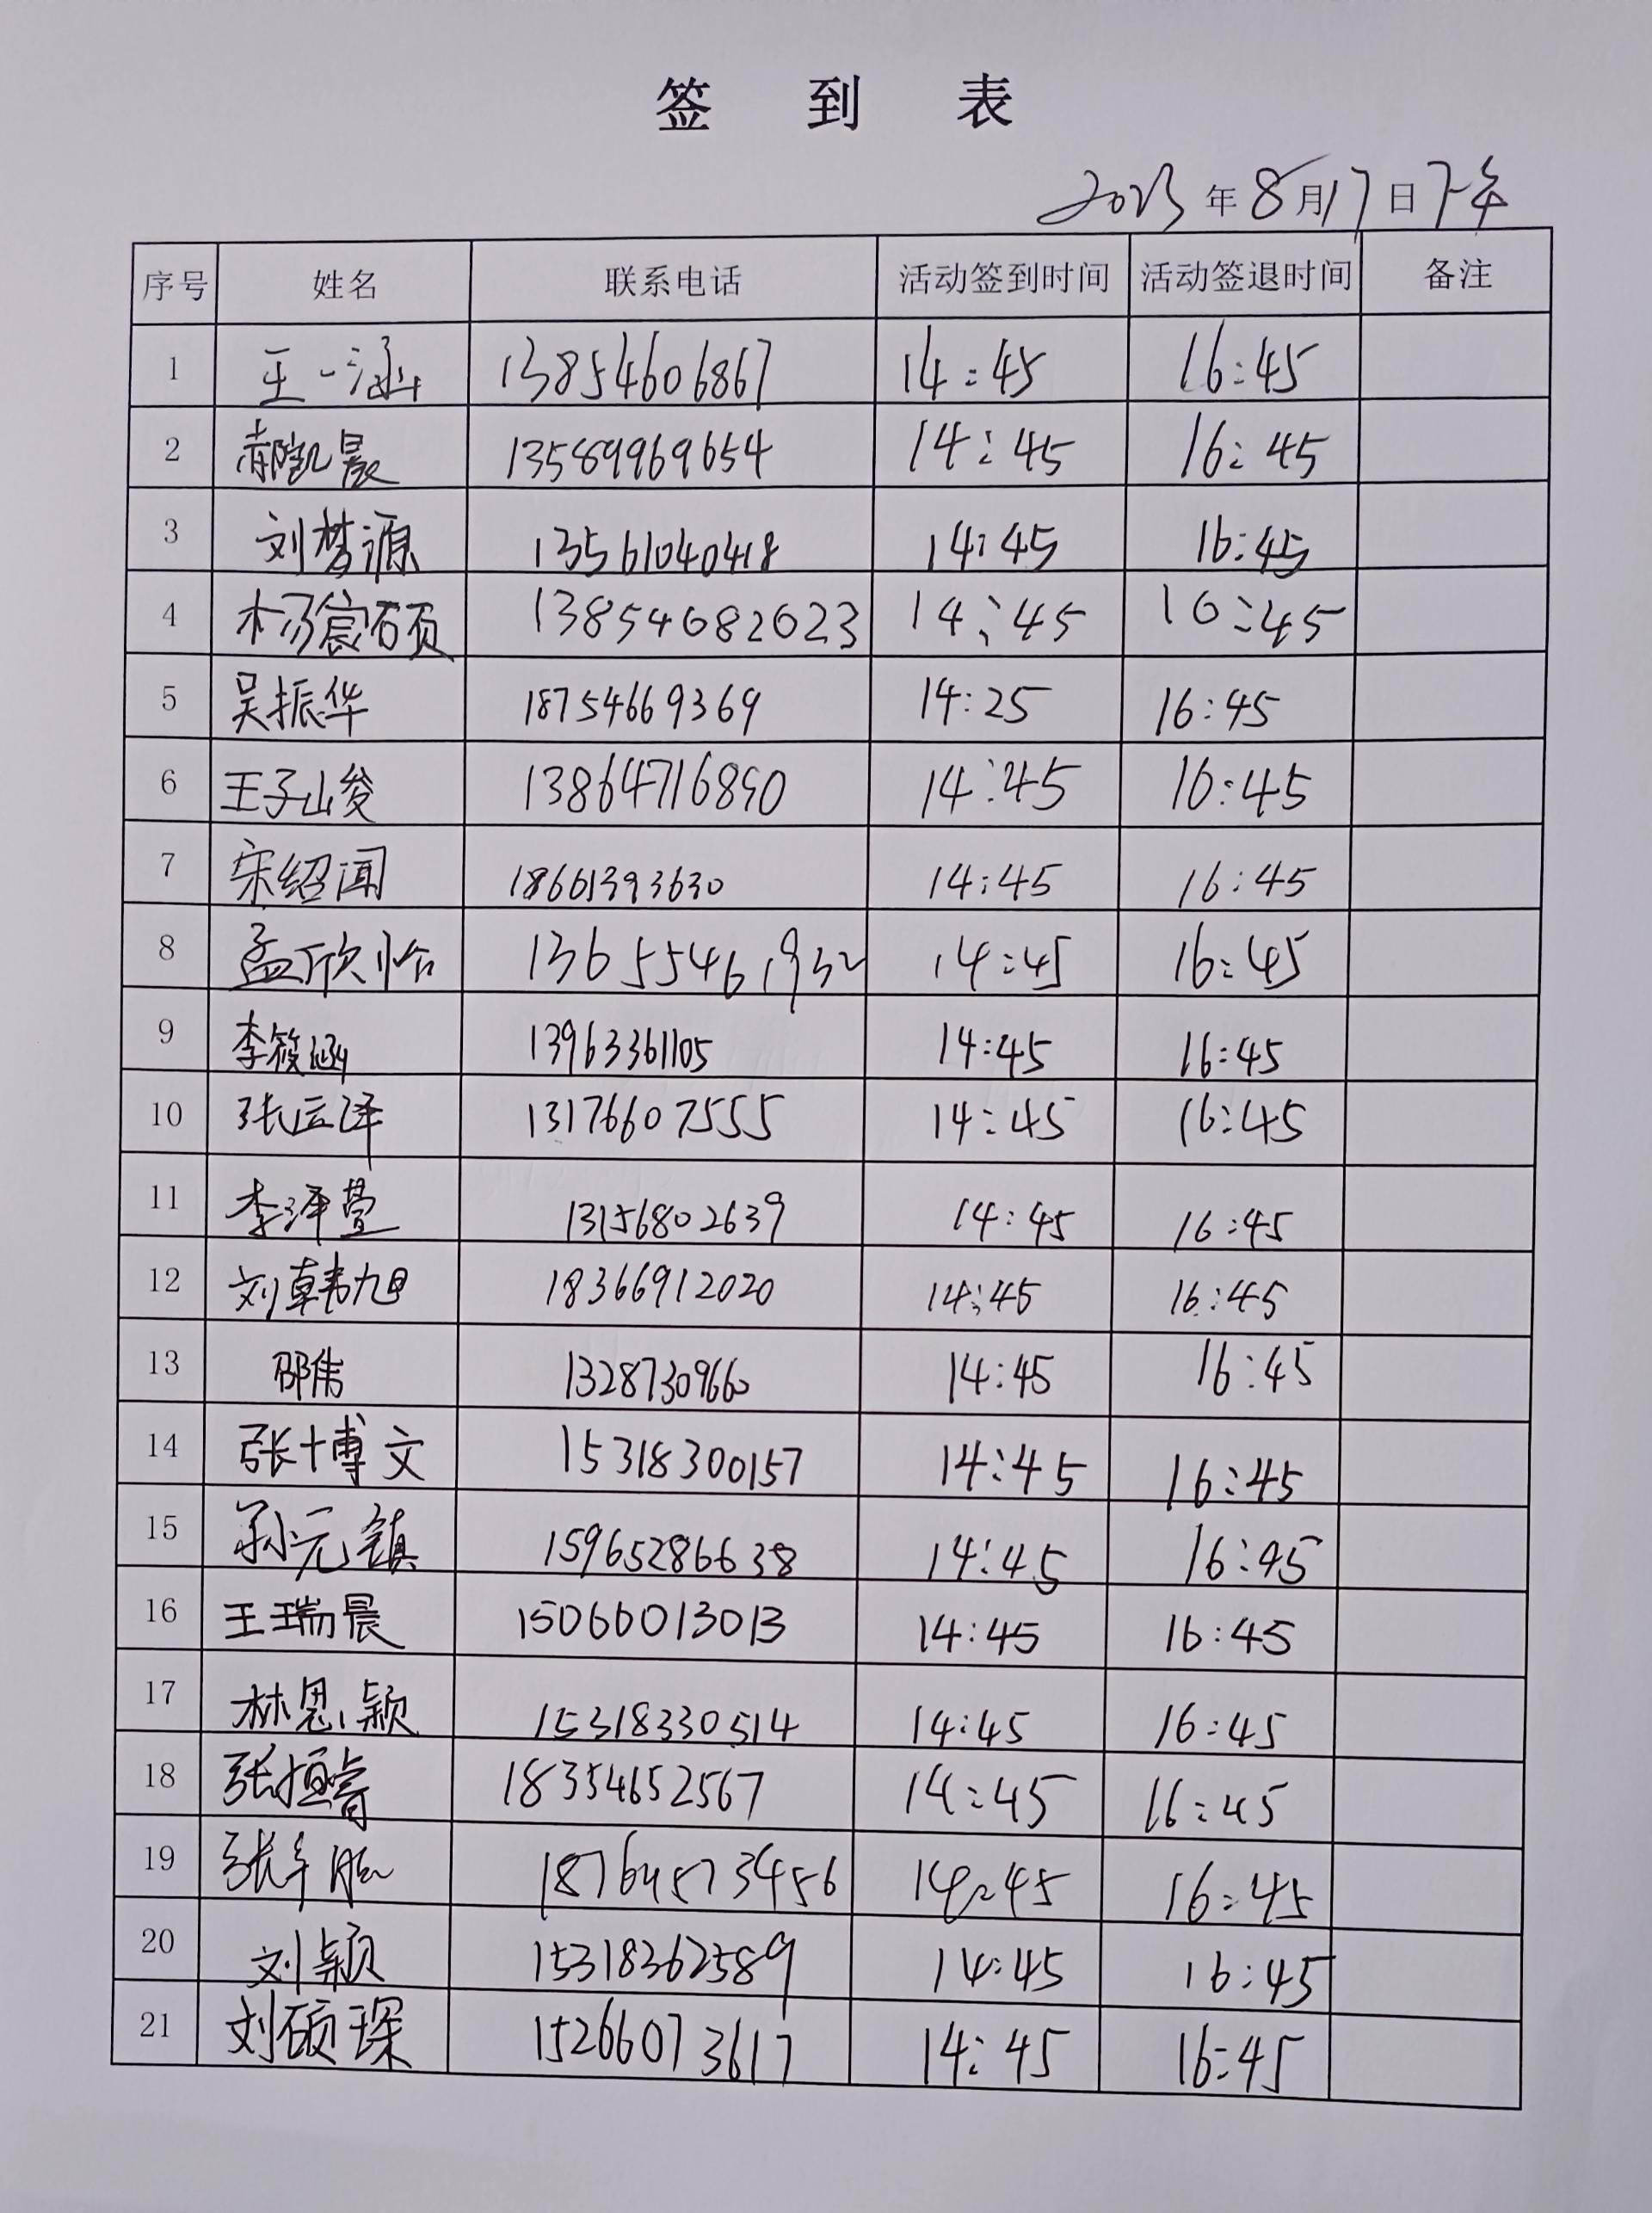 签 到 表
2023年8月17日下午
序号 姓名 联系电话 活动签到时间 活动签退时间 备注
1 王一涵 13854606867 14:45 16:45
2 郝凯晨 13589969654 14:45 16:45
3 刘梦源 13561040418 14:45 16:45
4 杨宸硕 13854682623 14:45 16:45
5 吴振华 18754669369 14:25 16:45
6 王子峻 13864716890 14:45 16:45
7 宋绍闻 18661393630 14:45 16:45
8 孟欣怡 13655461932 14:45 16:45
9 李筱涵 13963361105 14:45 16:45
10 张运泽 13176607555 14:45 16:45
11 李泽萱 13156802639 14:45 16:45
12 刘韩旭 18366912020 14:45 16:45
13 邵伟 13287309660 14:45 16:45
14 张博文 15318300157 14:45 16:45
15 孙元镇 15965286638 14:45 16:45
16 王瑞晨 15066013013 14:45 16:45
17 林思颖 15318330514 14:45 16:45
18 张恒睿 18354652567 14:45 16:45
19 18764573456 14:45 16:45
20 刘颖 15318362589 14:45 16:45
21 刘硕琛 15266073617 14:45 16:45